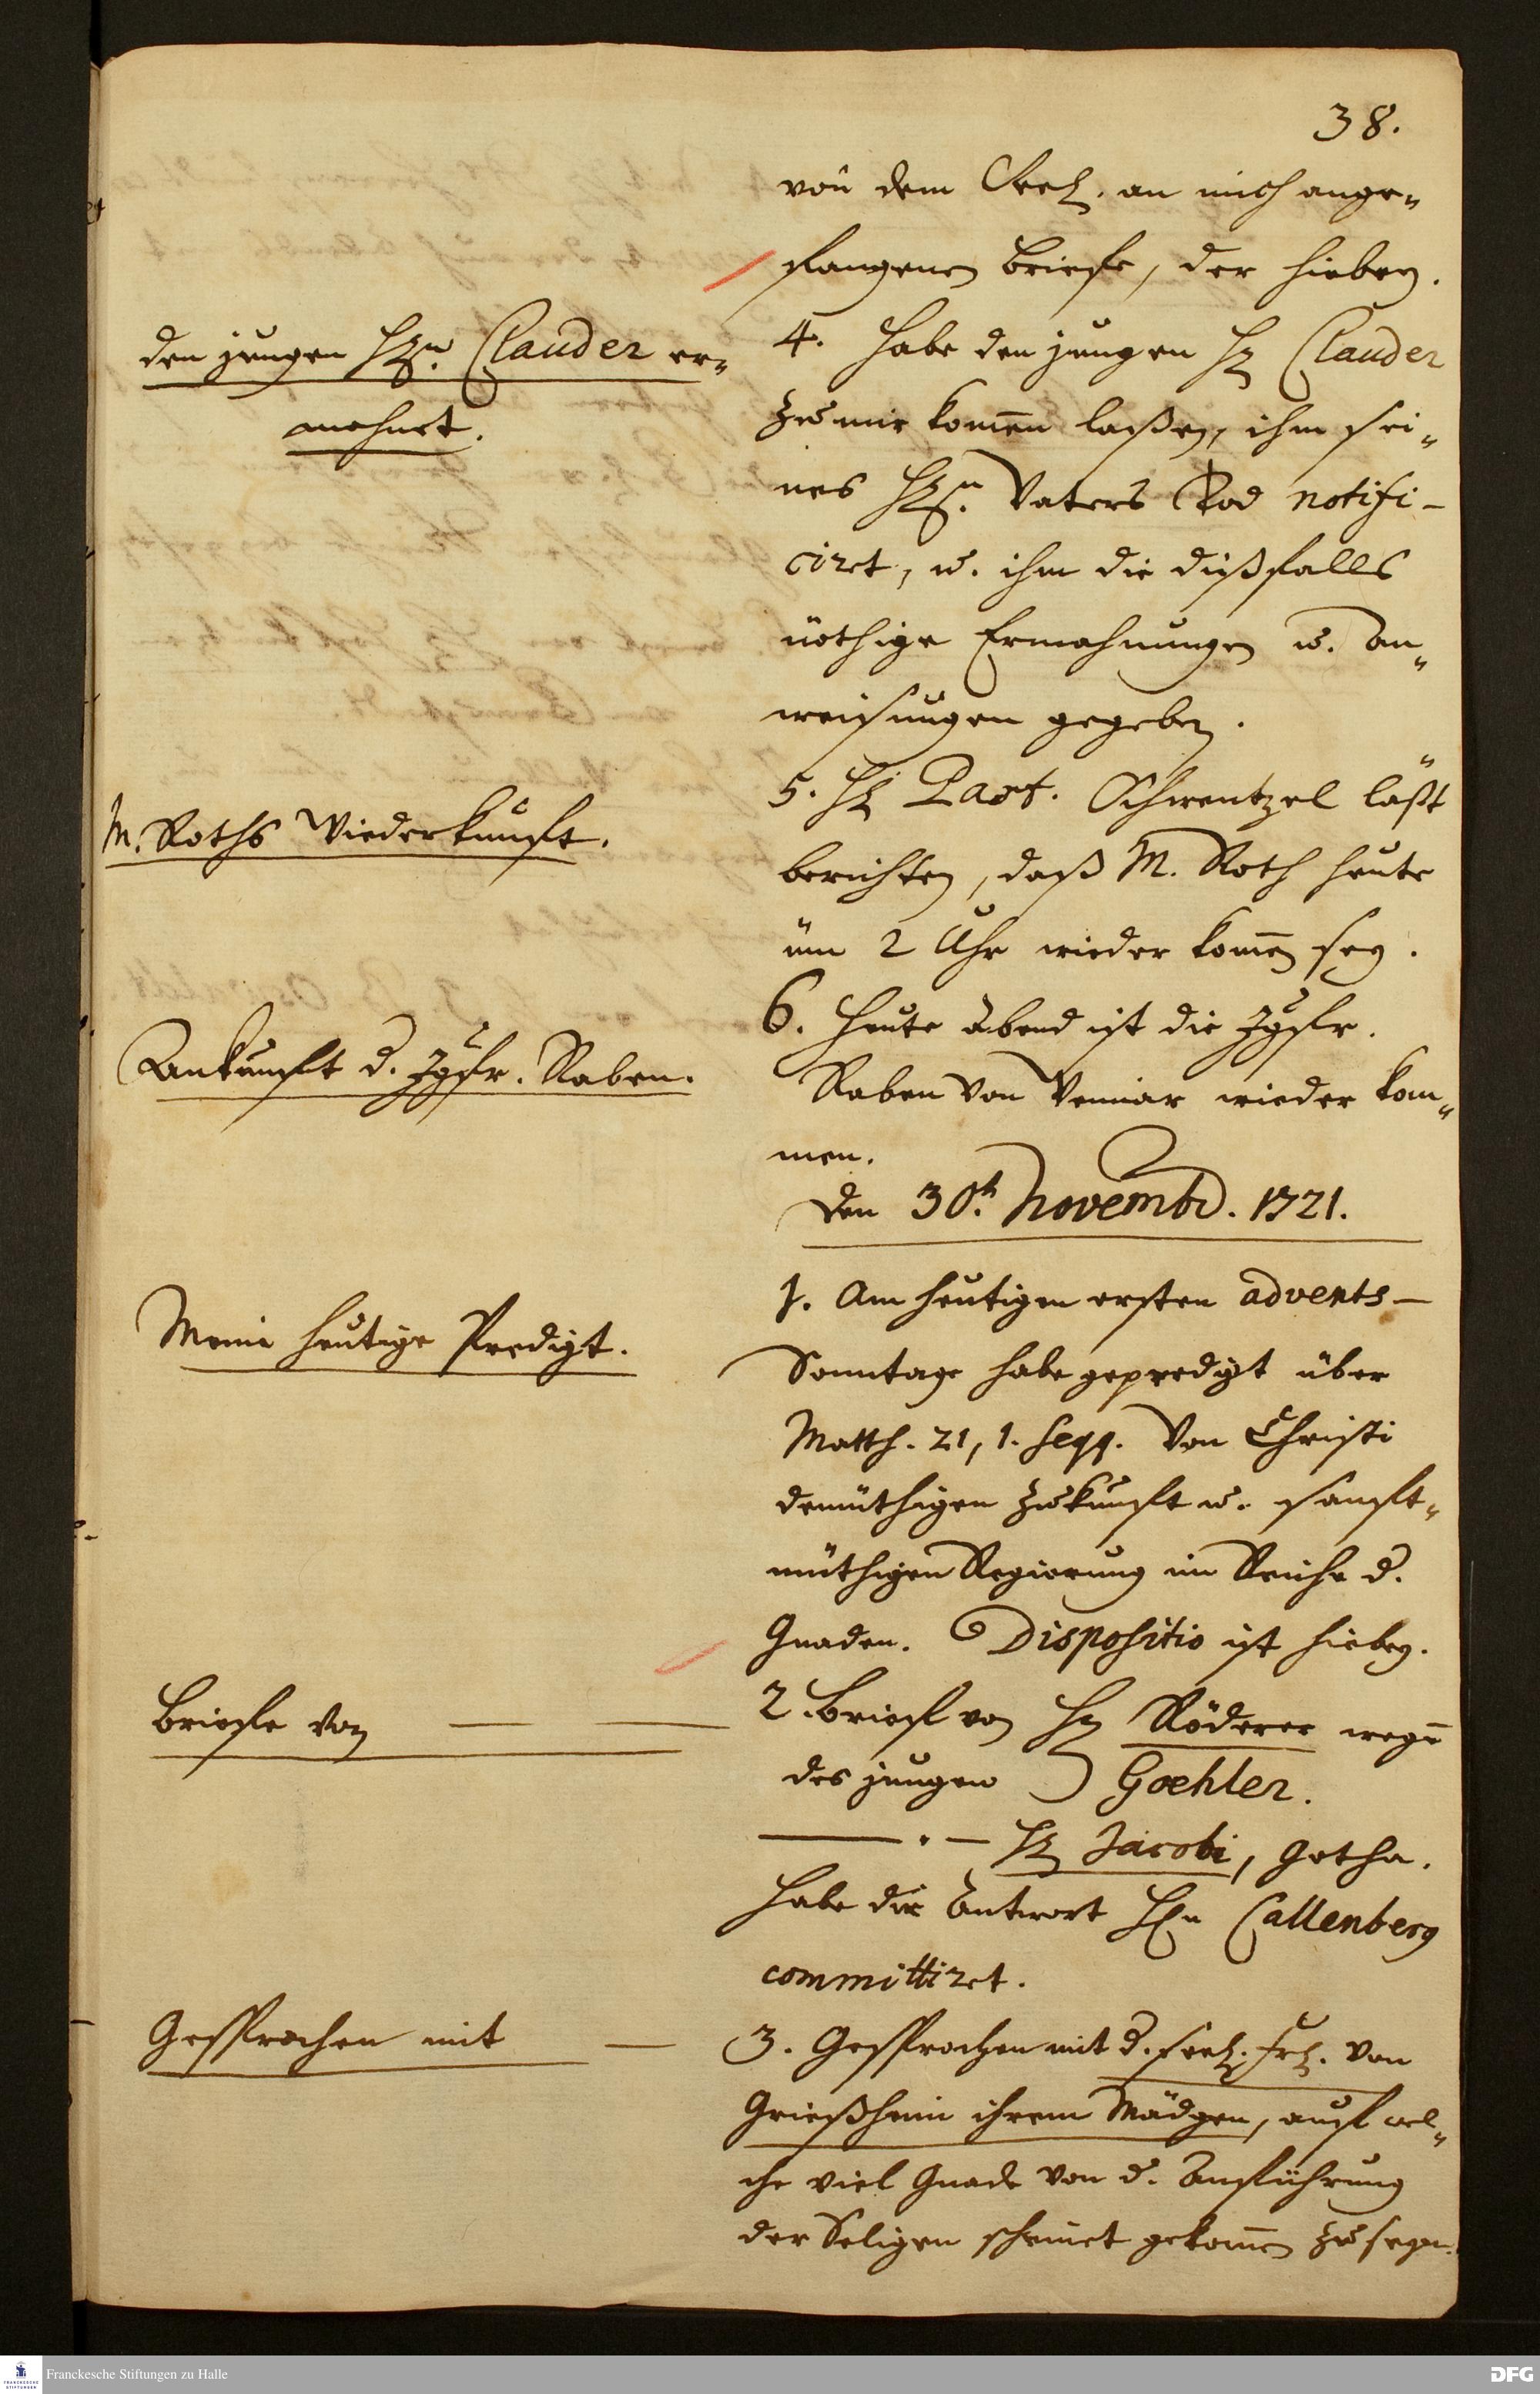 38.
von dem Seel. an mich ange-
fangenen Briefe, der hiebey.
den jungen Hrn. Clauder er-
mahnet.
4. Habe den jungen H. Clauder
zu mir kommen laßen, ihm sei-
nes Hrn. Vaters Tod notifi-
ciret, u. ihm die dißfalls
nöthige Ermahnungen u. An-
weisungen gegeben.
M. Roths Wiederkunfft.
5. H. Past. Schwentzel läßt
berichten, daß M. Roth heute
üm 2 Uhr wieder kommen sey.
Ankunfft d. Jgfr. Raben.
6. Heute Abend ist die Jgfr.
Raben von Weimar wieder kom-
men.
Den 30.t Novembr. 1721.
Meine heutige Predigt.
1. Am heutigen ersten advents-
Sonntage habe geprediget über
Matth. 21, 1. seqq. Von Christi
demüthigen Zukunfft u. sanfft-
müthigen Regierung im Reiche d.
Gnaden. Dispositio ist hiebey.
Briefe von
2. Brief von H. Röderer wegen
des jungen Goehler.
H. Jacobi, Gotha.
Habe die Antwort Hn Callenberg
committiret.
Gesprochen mit
3. Gesprochen mit d. seel. Frl. von
Grießheim ihrem Mädgen, auf wel-
che viel Gnade von d. Anführung
der Seligen scheinet gekommen zu seyn.
Franckesche Stiftungen zu Halle
DFG